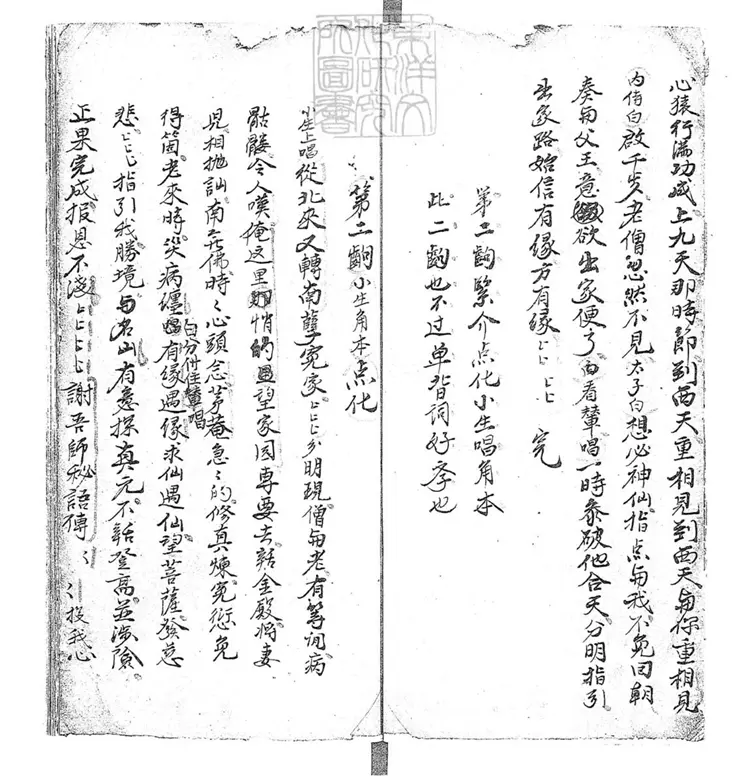 心猿行滿功成上九天那時節到西天重相見到西天与你重相見
內侍白啟千岁老僧忽然不見太子白想必神仙指点与我不免回朝
奏与父王意欲出家便了白看輦唱一時參破他合天分明指引
出家路始信有緣方有緣〻〻〻完
第二齣緊介点化小生唱角本
此二齣也不过单背词好孝也
東洋文化研究所圖書
第二齣小生角本点化
小生上唱從北來又轉南孽冤家〻〻〻分明現僧与老有等词病
骷髏令人嘆掩这里悄的望家园專要去辞金殿将妻
見相抛訕南無佛時〻心頭念茅庵急〻的修真煉冤愆免
得箇老來時災病纏白分付住輦唱有緣遇缘求仙遇仙望菩薩發慈
悲〻〻〻指引我勝境与名山有意採真元不辞登高並涉險
正果完成报恩不淺〻〻〻〻謝吾師秘語傳〻〻投我心